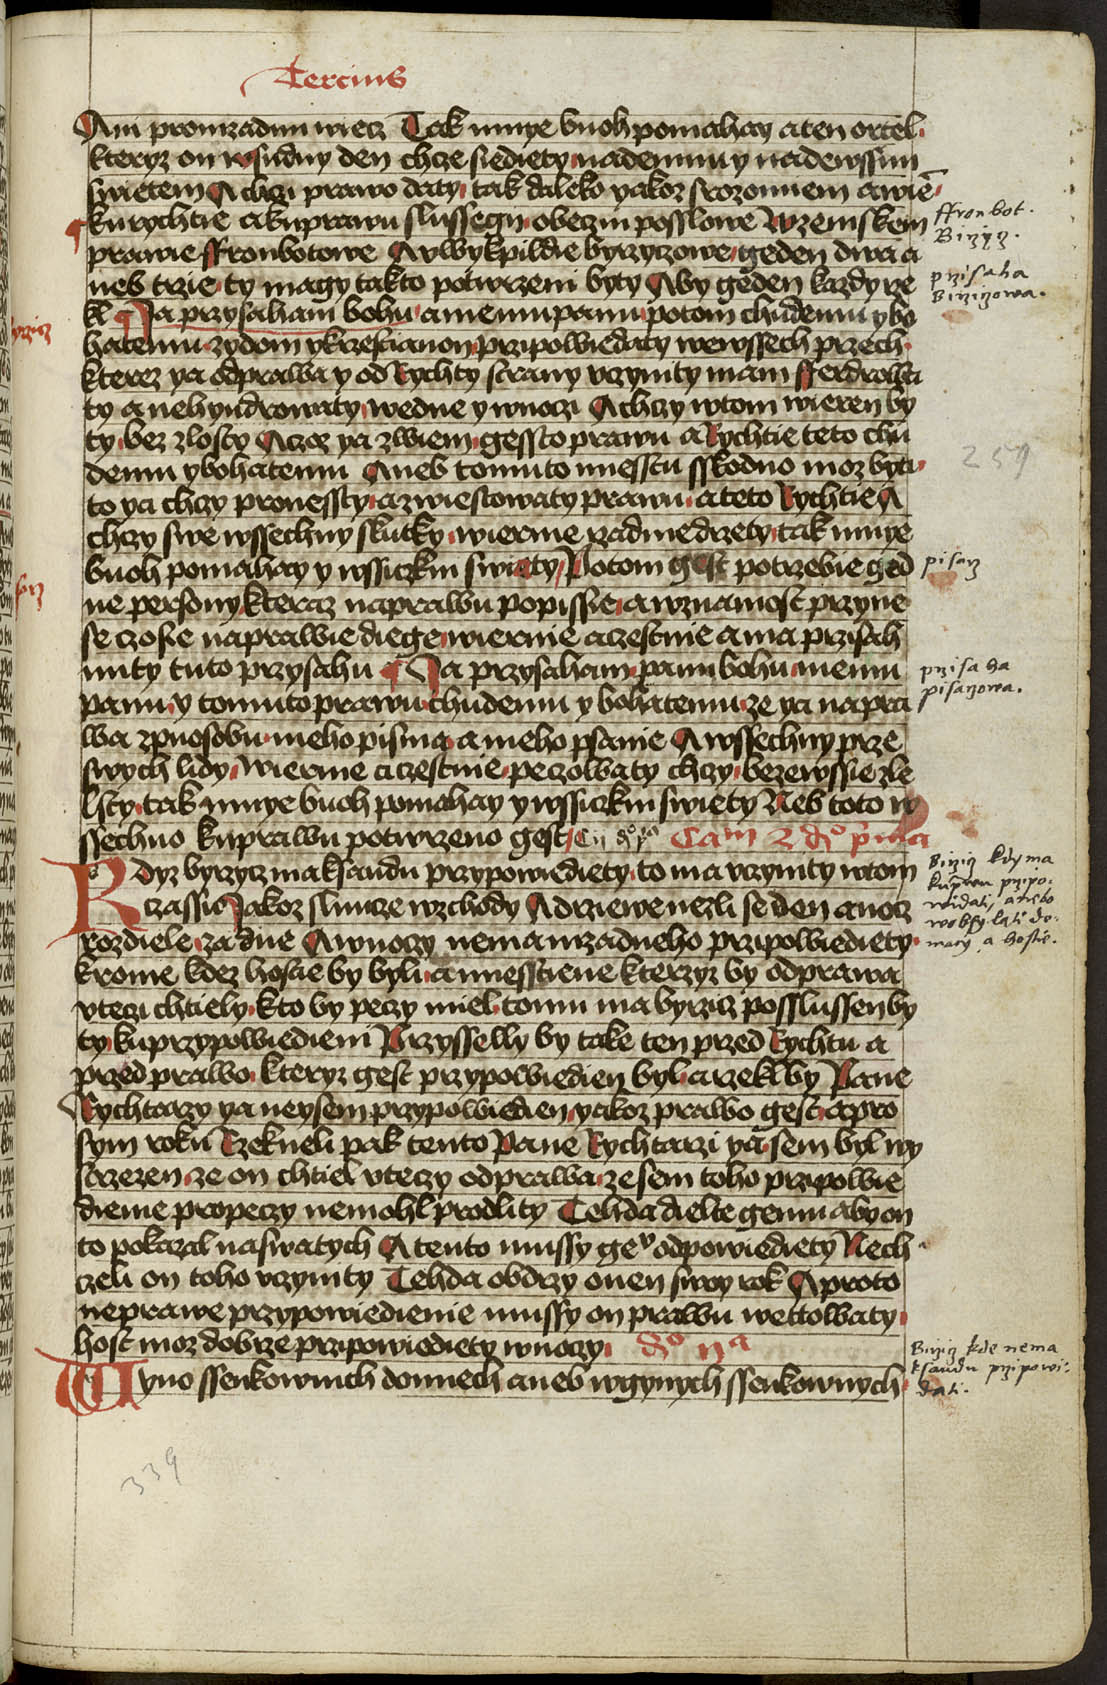 Tercius
Ani pro nizadnu wiecz Tak mnye buoh pomahay a ten ortel
kteryz on w sudny den chcze siediety nademnu y nadewssim
swietem A chczi prawo daty tak daleko yakoz srozomiem a wiē
ku rychtie a ku prawu slussegi obeczni posslowe w zemskem
prawie ffronbotowe A w wykpildie byrzyczowe geden dwa a
neb trzie ty magy takto potwrzeni byty Aby geden kazdy rze
kl Ja przysaham bohu a memu panu potom chudemu y bo
hatemu zydom y krzestianom przipowiedaty we wssech przech
kterez ya od prawa y od Rychty strany vczynity mam fferdrowa
ty a nehyndrowaty we dne y w noczi A chczy w tom wieren by
ty bez zlosty Acze ya zwiem gessto prawu a Rychtie teto chu
demu y bohatemu Aneb tomuto miestu sskodno moz byti
to ya chczy pronessty a zwiestowaty prawu a teto Rychtie A
chczy swe wssechny skutky wierne radnie drzety tak mnye
buoh pomahay y wssiczkni swaty Potom gest potrzebie ged
ne persony kteraz na prawu popissie a w znamost przyne
se czoz se na prawie diege wiernie a czestnie a ma przisah
nuty tuto przysahu Ja przysaham panu bohu memu
panu y tomuto prawu chudemu y bohatemu ze ya na pra
wa zpuosobu meho pisma a meho psanie A wssechny prze
swych lidy wierne a czestnie peczowaty chczy beze wssie zle
lsty tak mnye buoh pomahay y wssiczkni swiety Neb toto w
ssechno ku prawu potwrzeno gest Cam 2 do prima
Kdyz byrzycz ma k saudu przypowiediety to ma vczynity w tom
czassie Jakoz sluncze wzchody A drziewe nezli se den a nocz
rozdiele za dne A w noczy nema nizadneho przipowiediety
krome kdez hostie by byli a miesstiene kterzyz by od prawa
vteczi chtiely kto by peczy miel tomu ma byrzicz posslussen by
ty ku przypowiedieni Przysselly by take ten przed Rychtu a
przed prawo kteryz gest przypowiedien byl a rzekl by Pane
Rychtarzy ya neysem przypowiedien yakoz prawo gest a pro
sym roku Rzekneli pak tento Pane Rychtarzi ya sem byl wy
strzezen ze on chtiel vteczy od prawa ze sem toho przipowie
dienie pro peczy nemohl prodlity Tehda dielte gemu aby on
to pokazal na swatych A tento mussy geo odpowiediety Nech
czeli on toho vczynity Tehda obdrzy onen swoy rok A proto
ne prawe przypowiedienie mussy on prawu wettowaty
host moz dobrze przipowiediety w noczy do IIa
W wyno ssenkownich domiech aneb w gynych ssenkownych
ffronbot.
Birzicz.
przisaha
Birziczowa.
259
pisarz
przisaha
pisarzowa.
Birzicz kdy ma
ku prawu przipo-
widati, a nebo
w obsylati do-
macy a hostie.
Birzicz kde nema
k saudu przipowi-
dati.
339